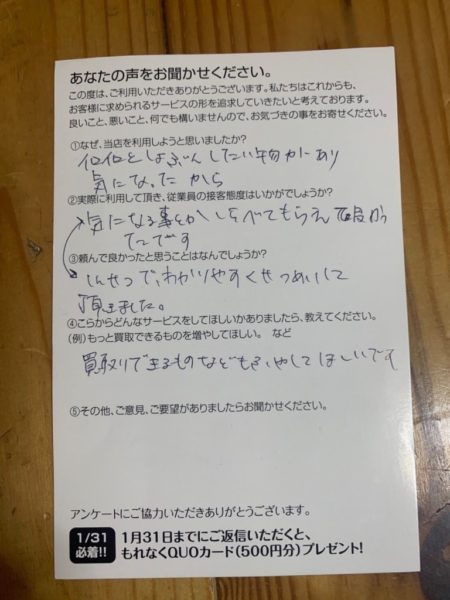 あなたの声をお聞かせください。
この度は、ご利用いただきありがとうございます。私たちはこれからも、
お客様に求められるサービスの形を追求していきたいと考えております。
良いこと、悪いこと、何でも構いませんので、お気づきの事をお寄せください。
①なぜ、当店を利用しようと思いましたか?
色色としょぶんしたい物があり
気になったから
②実際に利用して頂き、従業員の接客態度はいかがでしょうか?
気になる事をかしらべてもらえ良かっ
たです
③頼んで良かったと思うことはなんでしょうか?
しんせつで、わかりやすくせつめいして
頂きました。
④こらからどんなサービスをしてほしいかありましたら、教えてください。
(例)もっと買取できるものを増やしてほしい。 など
買取りできるものなどもふやしてほしいです
⑤その他、ご意見、ご要望がありましたらお聞かせください。
アンケートにご協力いただきありがとうございます。
1/31
必着!!
1月31日までにご返信いただくと、
もれなくQUOカード(500円分)プレゼント!